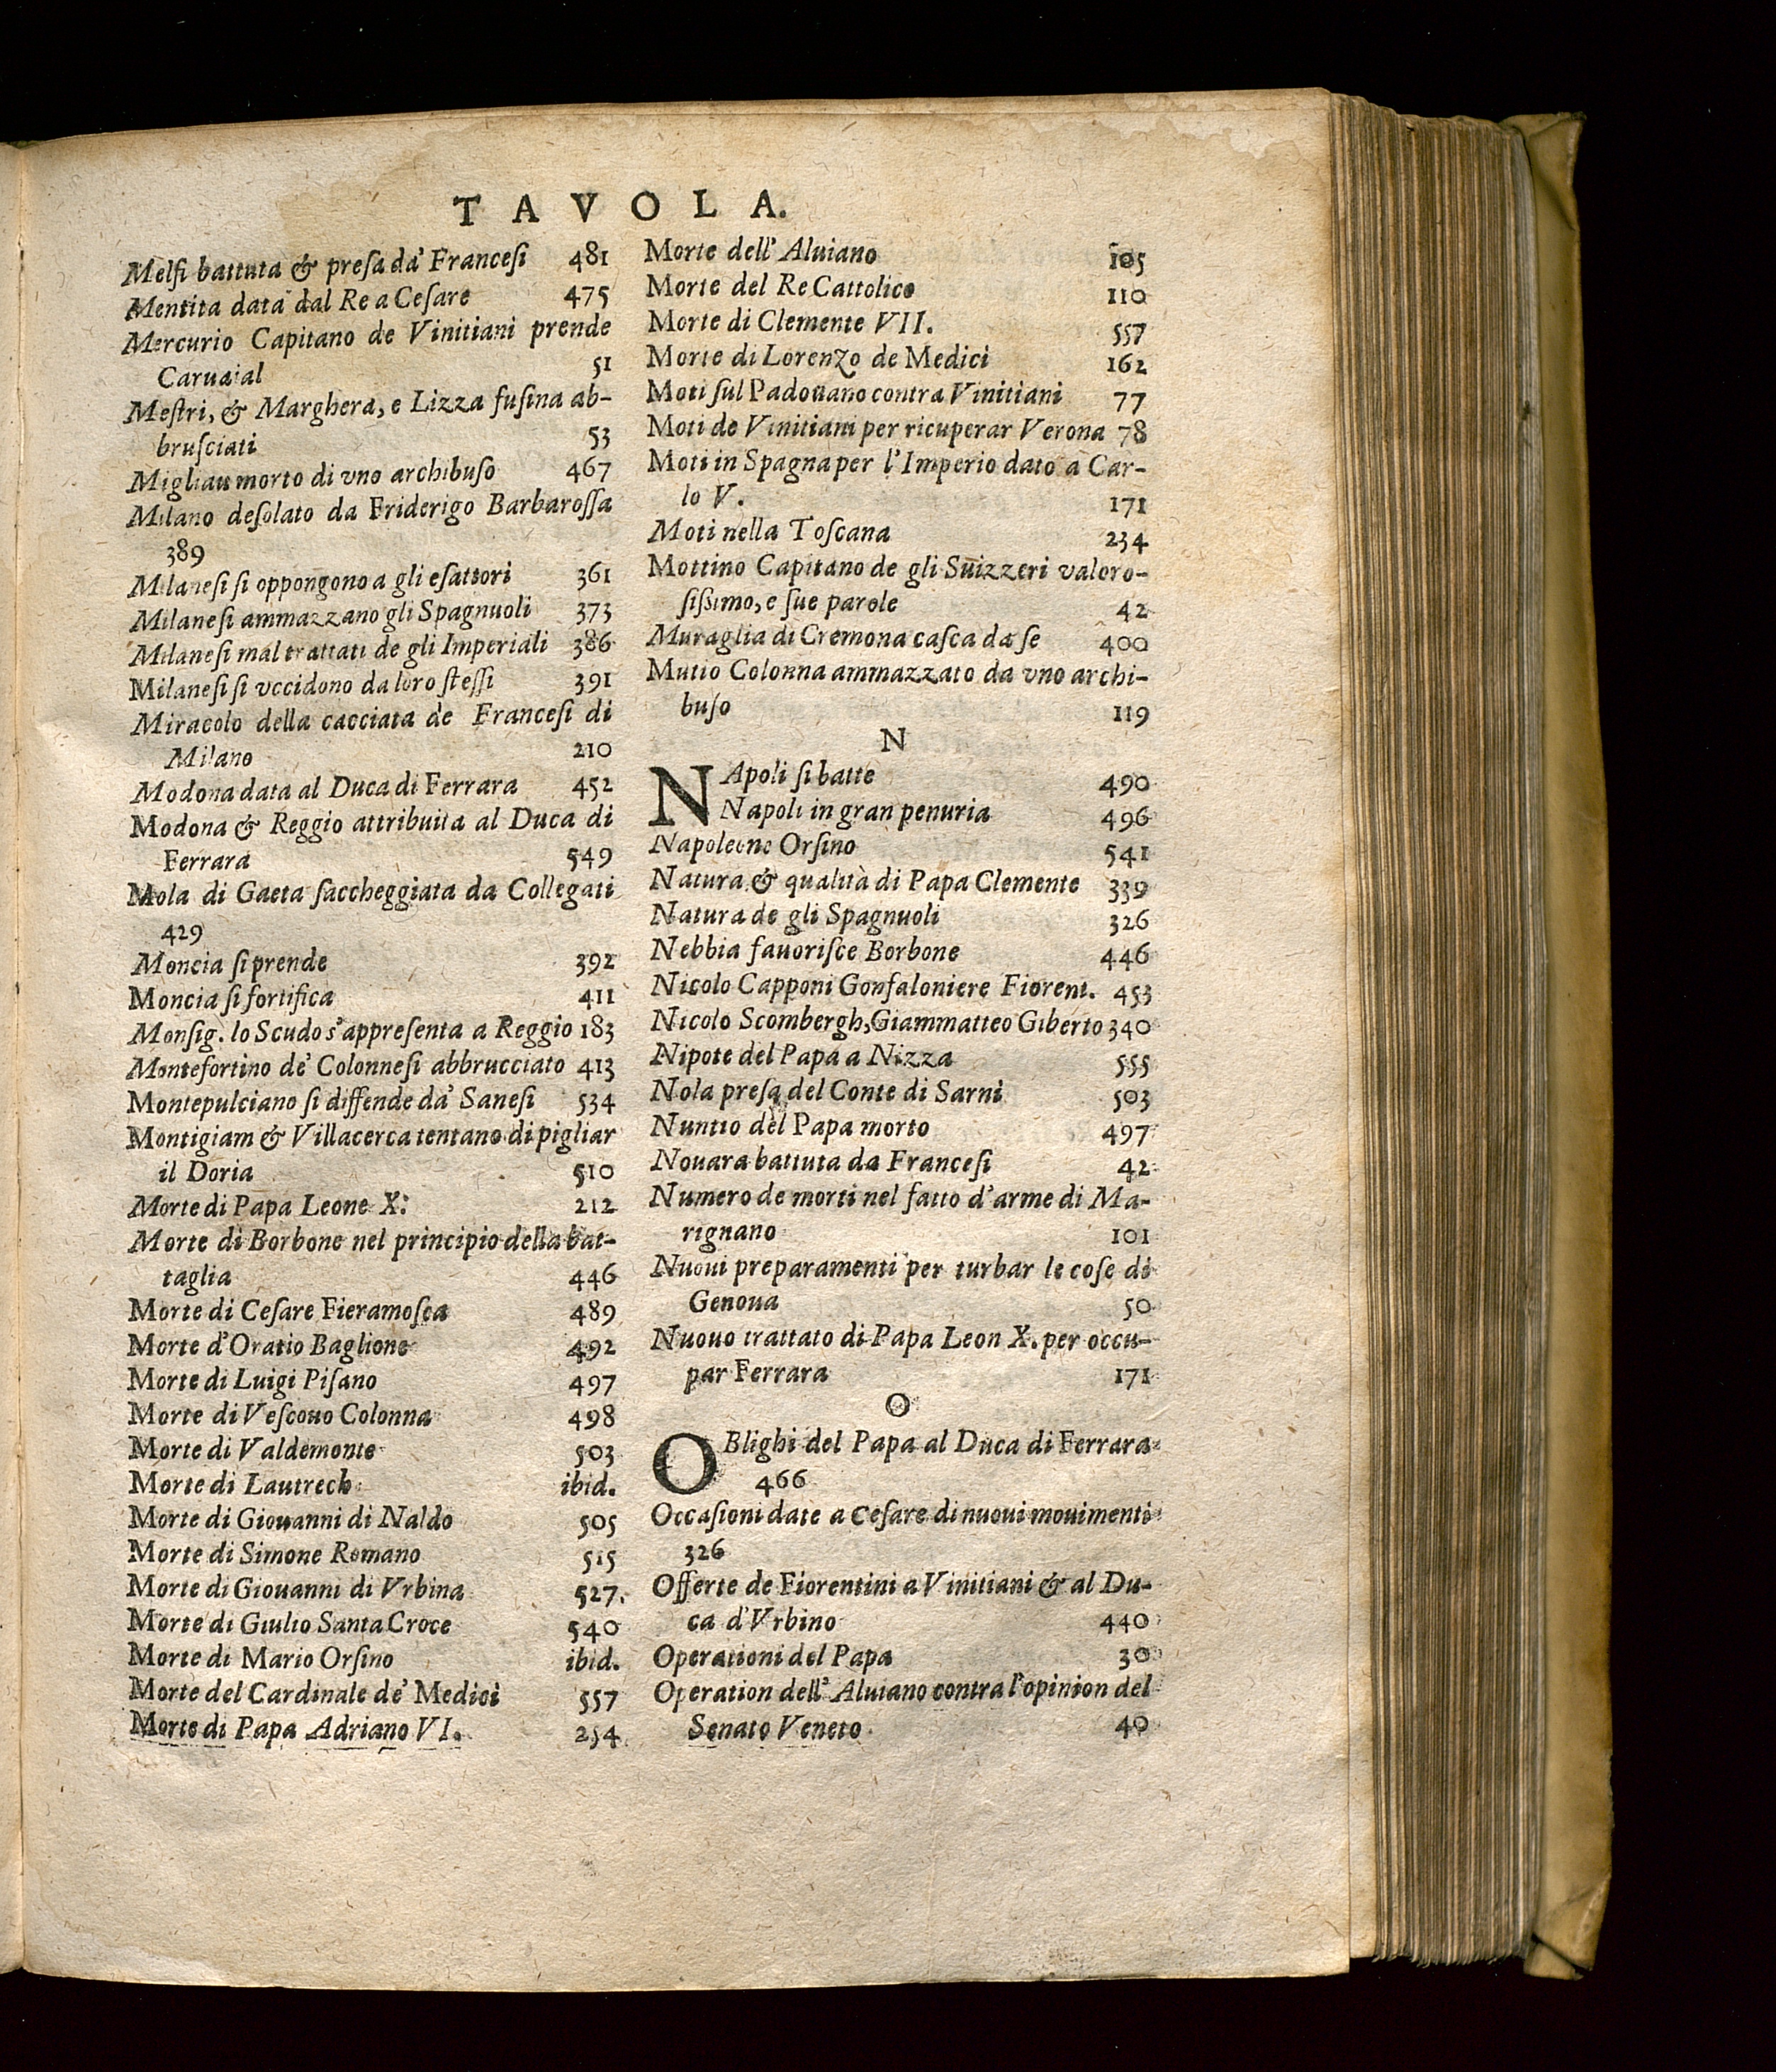 TAVOLA.
Melfi battuta & preſa da' Franceſi 481
Mentita data dal Re a Ceſare 475
Mercurio Capitano de Vinitiani prende
Caruaial 51
Meſtri, & Marghera, e Lizza fuſina ab-
bruſciati 53
Migliau morto di vno archibuſo 467
Milano deſolato da Friderigo Barbaroſſa
389
Milaneſi ſi oppongono a gli eſattori 361
Milaneſi ammazzano gli Spagnuoli 373
Milaneſi mal trattati de gli Imperiali 386
Milaneſi ſi vccidono da loro ſteſſi 391
Miracolo della cacciata de Franceſi di
Milano 210
Modona data al Duca di Ferrara 452
Modona & Reggio attribuita al Duca di
Ferrara 549
Mola di Gaeta ſaccheggiata da Collegati
429
Moncia ſi prende 392
Moncia ſi fortifica 411
Monſig. lo Scudo s'appreſenta a Reggio 183
Montefortino de' Colonneſi abbrucciato 413
Montepulciano ſi diffende da' Saneſi 534
Montigiam & Villacerca tentano di pigliar
il Doria 510
Morte di Papa Leone X. 212
Morte di Borbone nel principio della bat-
taglia 446
Morte di Ceſare Fieramoſca 489
Morte d'Oratio Baglione 492
Morte di Luigi Piſano 497
Morte di Veſcouo Colonna 498
Morte di Valdemonte 503
Morte di Lautrech ibid.
Morte di Giouanni di Naldo 505
Morte di Simone Romano 515
Morte di Giouanni di Vrbina 527.
Morte di Giulio Santa Croce 540
Morte di Mario Orſino ibid.
Morte del Cardinale de' Medici 557
Morte di Papa Adriano VI. 254
Morte dell' Aluiano 105
Morte del Re Cattolico 110
Morte di Clemente VII. 557
Morte di Lorenzo de Medici 162
Moti ſul Padouano contra Vinitiani 77
Moti de Vinitiani per ricuperar Verona 78
Moti in Spagna per l'Imperio dato a Car-
lo V. 171
Moti nella Toſcana 234
Mottino Capitano de gli Suizzeri valoro-
ſiſſimo, e ſue parole 42
Muraglia di Cremona caſca da ſe 400
Mutio Colonna ammazzato da vno archi-
buſo 119
N
NApoli ſi batte 490
Napoli in gran penuria 496
Napoleone Orſino 541
Natura & qualità di Papa Clemente 339
Natura de gli Spagnuoli 326
Nebbia fauoriſce Borbone 446
Nicolo Capponi Gonfaloniere Fiorent. 453
Nicolo Scombergh, Giammatteo Giberto 340
Nipote del Papa a Nizza 555
Nola preſa del Conte di Sarni 503
Nuntio del Papa morto 497
Nouara battuta da Franceſi 42
Numero de morti nel fatto d'arme di Ma-
rignano 101
Nuoui preparamenti per turbar le coſe di
Genoua 50
Nuouo trattato di Papa Leon X. per occu-
par Ferrara 171
O
OBlighi del Papa al Duca di Ferrara
466
Occaſioni date a Ceſare di nuoui mouimenti
326
Offerte de Fiorentini a Vinitiani & al Du-
ca d'Vrbino 440
Operationi del Papa 30
Operation dell' Aluiano contra l'opinion del
Senato Veneto 40